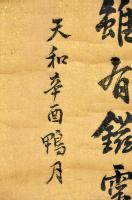 雖有鎧雲
天和辛酉鴨月